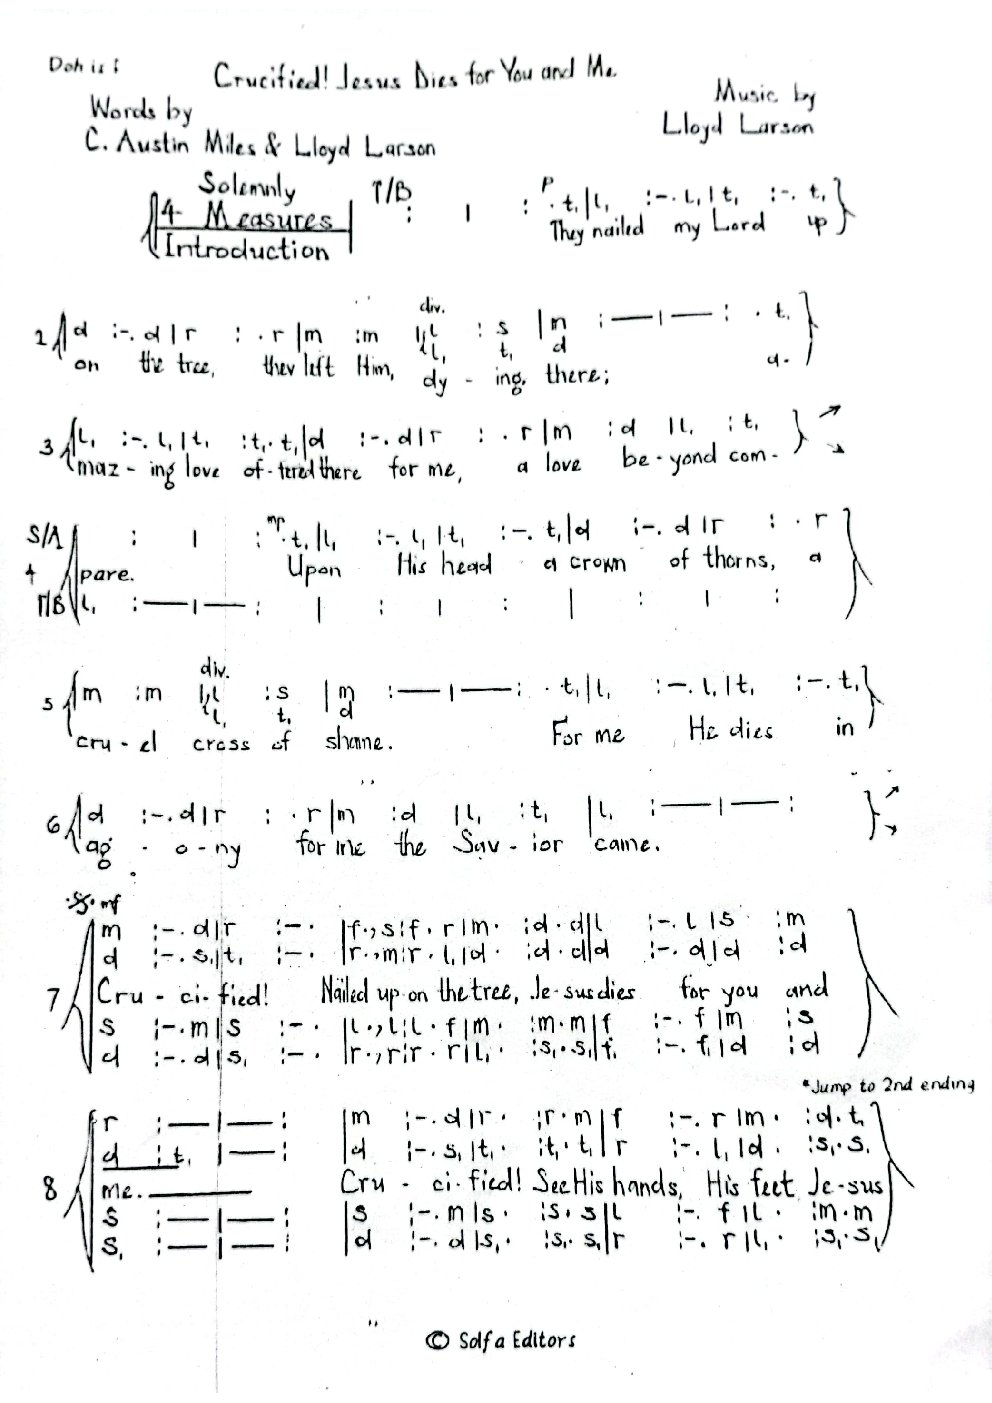 Doh is :
Crucified! Jesus Dies for You and Me
Words by
C. Austin Miles & Lloyd Larson
Music by
Lloyd Larson
Solemnly
4 Measures
Introduction
T/B : | : p . t, | l, :-. l, | t, :-. t,
They nailed my Lord up
2 d :-. d | r : . r | m :m
div.
| l : s | m :—|— : . t,
l, t, d
on the tree, they left Him, dy - ing, there; a-
3 l, :-. l, | t, :t, . t, | d :-. d | r : . r | m :d | l, : t,
maz - ing love of-fered there for me, a love be - yond com-
S/A : | : mp . t, | l, :-. l, | t, :-. t, | d :-. d | r : . r
4 pare. Upon His head a crown of thorns, a
T/B l, :—|— : | : | : | : | :
div.
5 m :m | l :s | m :—|— : . t, | l, :-. l, | t, :-. t,
l, t, d
cru - el cross of shame. For me He dies in
6 d :-. d | r : . r | m :d | l, : t, | l, :—|— :
ag - o - ny for me the Sav - ior came.
mf
m :-. d | r :-. | f ., s : f . r | m . :d . d | l :-. l | s :m
d :-. s, | t, :-. | r ., m : r . l, | d . :d . d | d :-. d | d :d
7 Cru - ci - fied! Nailed up on the tree, Je-sus dies for you and
s :-. m | s :-. | l ., l : l . f | m . :m . m | f :-. f | m :s
d :-. d | s, :-. | r ., r : r . r | l, . :s, . s, | f, :-. f, | d :d
*Jump to 2nd ending
r :—|— : | m :-. d | r . :r . m | f :-. r | m . :d . t,
d : t, |— : | d :-. s, | t, . :t, . t, | r :-. l, | d . :s, . s,
8 me. Cru - ci - fied! See His hands, His feet, Je-sus
s :—|— : | s :-. m | s . :s . s | l :-. f | l . :m . m
s, :—|— : | d :-. d | s, . :s, . s, | r :-. r | l, . :s, . s,
© Solfa Editors